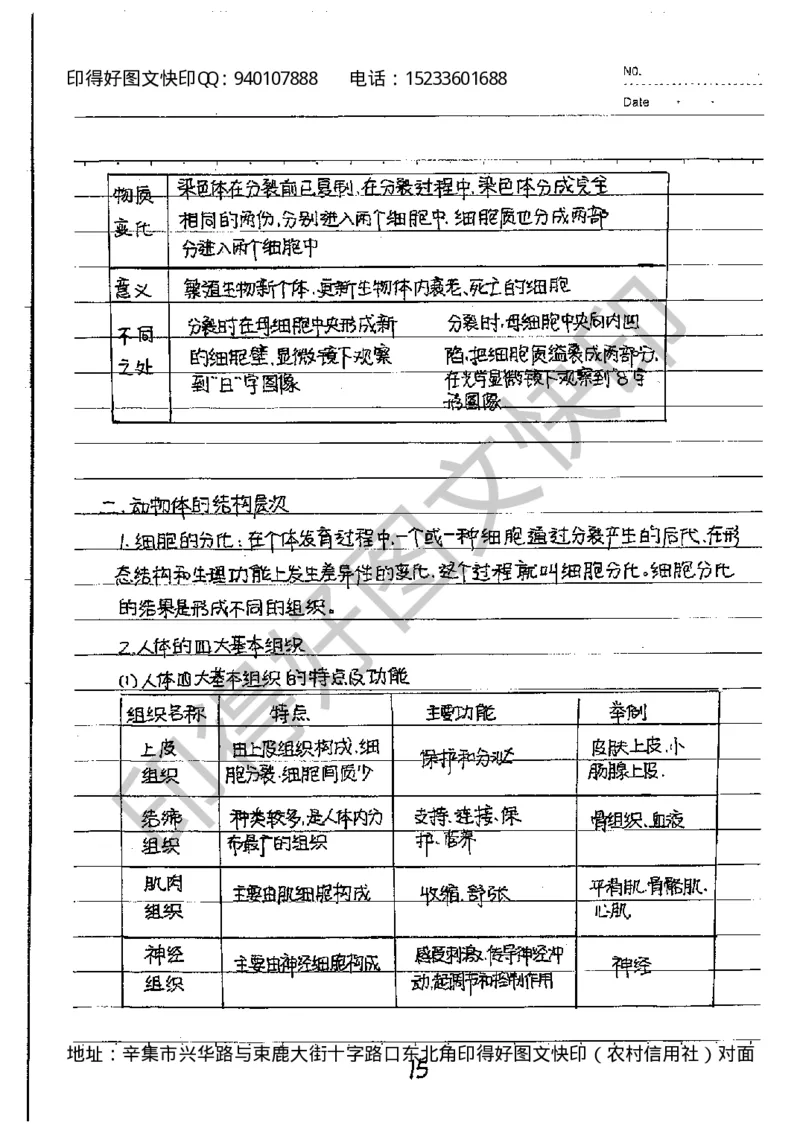 印得好图文快印QQ：940107888 电话：15233601688
NO.
Date
物质变化
染色体在分裂前已复制，在分裂过程中，染色体分成完全
相同的两份，分别进入两个细胞中，细胞质也分成两部
分进入两个细胞中
意义
繁殖生物新个体，更新生物体内衰老、死亡的细胞
不同之处
分裂时在母细胞中央形成新
的细胞壁，显微镜下观察
到"日"字图像
分裂时，母细胞中央向内凹
陷，把细胞质缢裂成两部分，
在光学显微镜下观察到"8"字
形图像
二、动物体的结构层次
1.细胞的分化：在个体发育过程中，一个或一种细胞通过分裂产生的后代，在形
态结构和生理功能上发生差异性的变化，这个过程就叫细胞分化。细胞分化
的结果是形成不同的组织。
2.人体的四大基本组织
(1)人体四大基本组织的特点及功能
组织名称 特点 主要功能 举例
上皮组织
由上皮组织构成，细
胞分裂，细胞间质少
保护和分泌
皮肤上皮、小
肠腺上皮.
结缔组织
种类较多，是人体内分
布最广的组织
支持、连接、保
护、营养
骨组织、血液
肌肉组织
主要由肌细胞构成
收缩、舒张
平滑肌、骨骼肌、
心肌
神经组织
主要由神经细胞构成
感受刺激，传导神经冲
动，起调节和控制作用
神经
印得好图文快印
地址：辛集市兴华路与束鹿大街十字路口东北角印得好图文快印（农村信用社）对面
15